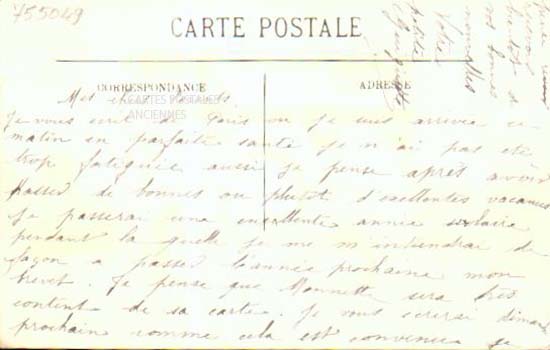 755049
CARTE POSTALE
CORRESPONDANCE
ADRESSE
CARTES POSTALES
ANCIENNES
Mes chers
Je vous écris de Paris ou je suis arrivée ce
matin en parfaite santé je n'ai pas été
trop fatiguée aussi je pense après avoir
passée de bonnes ou plutot d'excellentes vacances
je passerai une excellente année scolaire
pendant la quelle je me m'intiendrai de
façon a passer l'année prochaine mon
brevet. Je pense que Nounette sera très
content de sa carte. Je vous ecrirai dimanche
prochain comme cela est convenue je
recevoir
bientot de
vos bonnes
nouvelles
Votre
petite